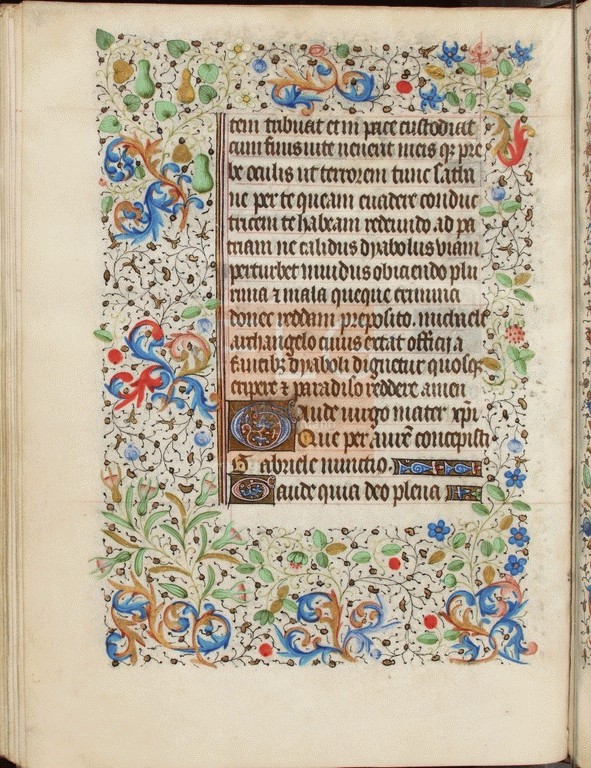 tem tribuat et in pace custodiat
cum finis vite venerit meis qz pre
be oculis ut terrorem tunc satha
ne per te queam evadere conduc
tricem te habeam redeundo ad pa
triam ne calidus dyabolus viam
perturbet invidus obiciendo plu
rima & mala queque crimina
donec reddam preposito. michaele
archangelo cuius extat officij a
faucibz dyaboli dignetur quosqz
eripere & paradiso reddere amen
Gaude virgo mater xpi.
Que per aurē concepisti
Gabriele nuncio.
Gaude quia deo plena